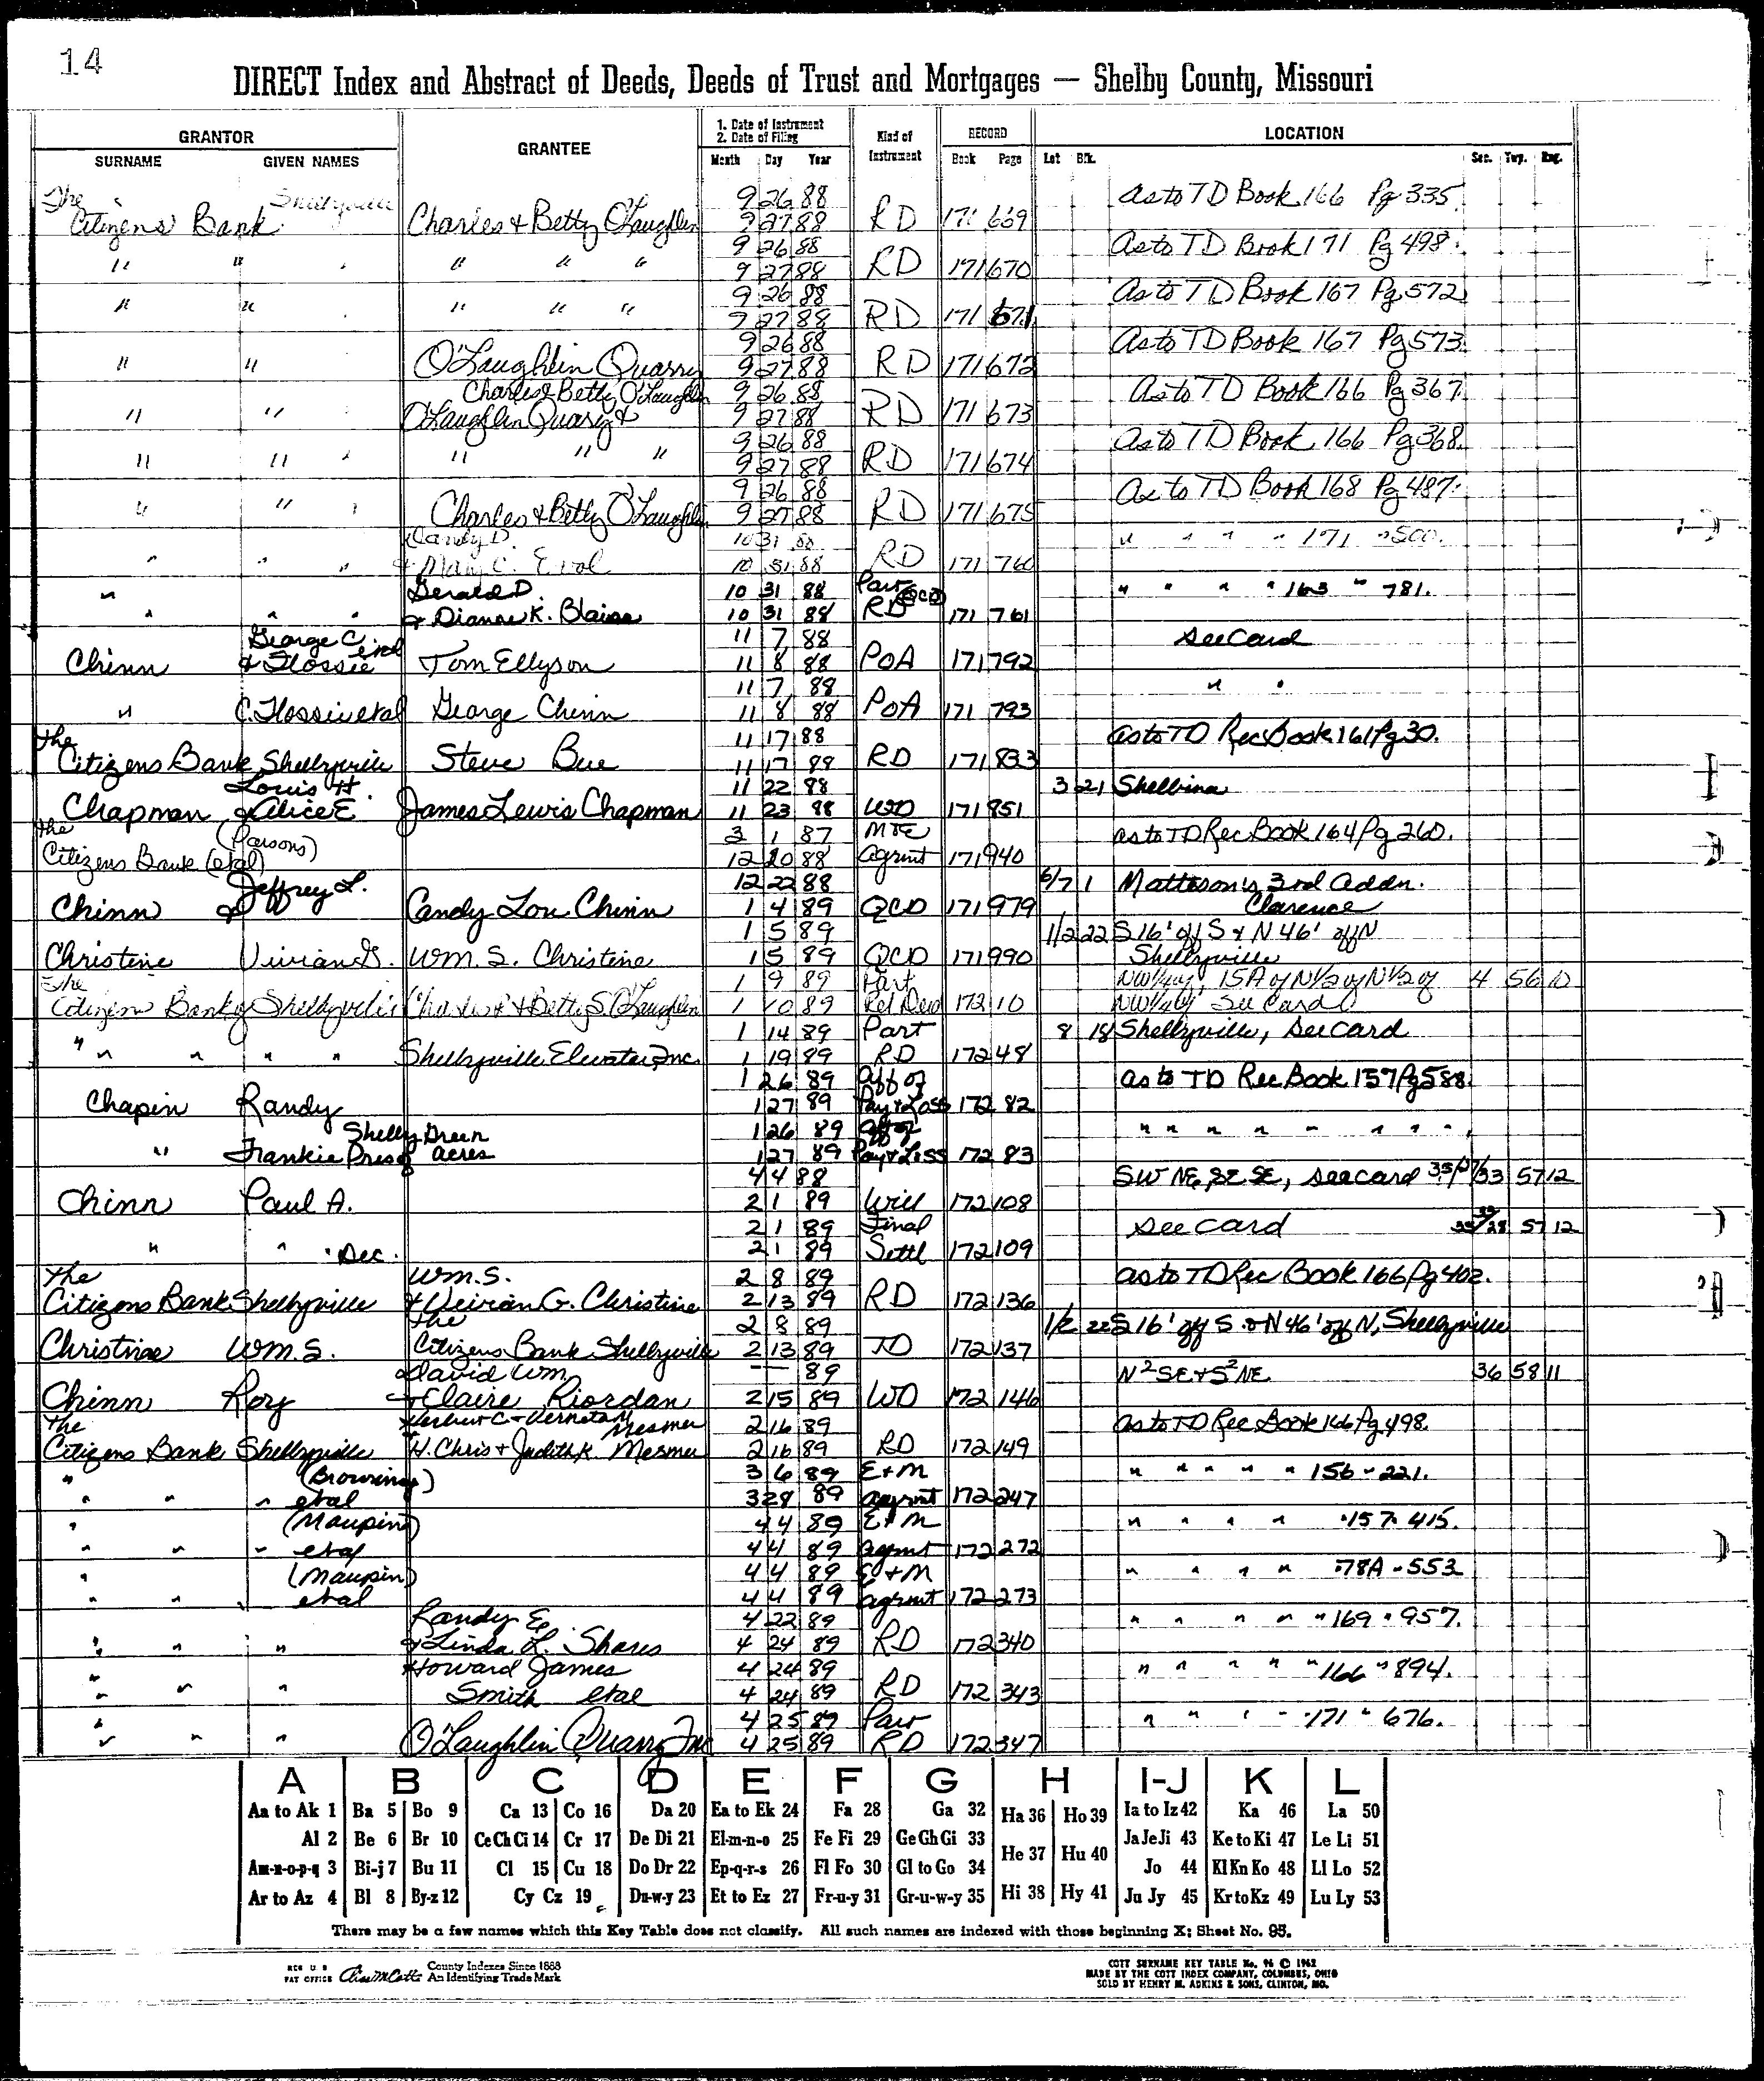 14
DIRECT Index and Abstract of Deeds, Deeds of Trust and Mortgages — Shelby County, Missouri
GRANTOR GRANTEE 1. Date of Instrument 2. Date of Filing Kind of Instrument RECORD LOCATION
SURNAME GIVEN NAMES Month Day Year Book Page Lot Blk. Sec. Twp. Rng.
The Shelbyville 9 26 88 As to TD Book 166 Pg 335
Citizens Bank Charles & Betty O'Laughlin 9 27 88 RD 171 669
9 26 88 As to TD Book 171 Pg 498.
" " " " " 9 27 88 RD 171 670
9 26 88 As to TD Book 167 Pg 572
" " " " " 9 27 88 RD 171 671
9 26 88 As to TD Book 167 Pg 573.
" " O'Laughlin Quarry 9 27 88 RD 171 672
Charles & Betty O'Laughlin 9 26 88 As to TD Book 166 Pg 367
" " O'Laughlin Quarry & 9 27 88 RD 171 673
9 26 88 As to TD Book 166 Pg 368.
" " " " " 9 27 88 RD 171 674
9 26 88 As to TD Book 168 Pg 487.
" " Charles & Betty O'Laughlin 9 27 88 RD 171 675
10 31 88 " " " " 171 " 500.
" " " & Mary C. 10 31 88 RD 171 760
" Gerald D. 10 31 88 Part " " " " 163 " 781.
" " " & Dianna K. Blaise 10 31 88 RD 171 761
George C. etal 11 7 88 See Card
Chinn & Flossie Tom Ellyson 11 8 88 POA 171 792
11 7 88 " "
" C. Flossie etal George Chinn 11 8 88 POA 171 793
The 11 17 88 As to TD Rec Book 161 Pg 30.
Citizens Bank Shelbyville Steve Bue 11 17 88 RD 171 833
Louis H. 11 22 88 3 21 Shelbina
Chapman & Alice E James Lewis Chapman 11 23 88 WD 171 851
The (Parsons) 3 1 87 As to TD Rec Book 164 Pg 260.
Citizens Bank (etal) 12 20 88 Agrmt 171 940
Jeffrey L. 12 22 88 6/7 1 Matteson's 3rd Addn.
Chinn & Candy Lou Chinn 1 4 89 QCD 171 979 Clarence
1 5 89 1/2 22 S 16' off S & N 46' off N
Christine Vivian G. Wm. S. Christine 1 5 89 QCD 171 990 Shelbyville
The 1 9 89 Part 15A of N1/2 of N1/2 of 4 56 10
Citizens Bank of Shelbyville Charles F & Betty S O'Laughlin 1 10 89 Rel Deed 172 10 See Card
1 14 89 Part 8 18 Shelbyville, See Card
" " " " " Shelbyville Elevator, Inc. 1 19 89 RD 172 48
1 26 89 Aff of As to TD Rec Book 157 Pg 588
Chapin Randy 1 27 89 Pay & Loss 172 82
Shelby Green 1 26 89 Aff of " " " " " " " " "
" Frankie Pres of Acres 1 27 89 Pay & Loss 172 83
4 4 88 SW NE, SE SE, See card 33 57 12
Chinn Paul A. 2 1 89 Will 172 108
2 1 89 Final See card 57 12
" " Dec. 2 1 89 Settl 172 109
The Wm. S. 2 8 89 As to TD Rec Book 166 Pg 402.
Citizens Bank Shelbyville & Vivian G. Christine 2 13 89 RD 172 136
The 2 8 89 1/2 22 S 16' off S & N 46' off N, Shelbyville
Christine Wm. S. Citizens Bank Shelbyville 2 13 89 TD 172 137
David Wm — 89 N2 SE & S2 NE 36 58 11
Chinn Rory & Claire Riordan 2 15 89 WD 172 146
The Mesmer 2 16 89 As to TD Rec Book 166 Pg 498.
Citizens Bank Shelbyville H. Chris & Judith K. Mesmer 2 16 89 RD 172 149
" (Browning) 3 6 89 E+M " " " " " 156 " 221.
" " " etal 3 28 89 agrmt 172 247
" (Maupin) 4 4 89 E+M " " " " 157 " 415.
" " " etal 4 4 89 agrmt 172 272
(Maupin) 4 4 89 E+M " " " " 78A " 553
" " " etal 4 4 89 agrmt 172 273
Randy E 4 22 89 " " " " " 169 " 957.
" " " & Linda L. Shares 4 24 89 RD 172 340
" Howard James 4 24 89 " " " " " 166 " 894.
" " " Smith etal 4 24 89 RD 172 343
" 4 25 89 Part " " " " 171 " 676.
" " " O'Laughlin Quarry Inc 4 25 89 RD 172 347
A B C D E F G H I-J K L
Aa to Ak 1 Ba 5 Bo 9 Ca 13 Co 16 Da 20 Ea to Ek 24 Fa 28 Ga 32 Ha 36 Ho 39 Ia to Iz 42 Ka 46 La 50
Al 2 Be 6 Br 10 Ce Ch Ci 14 Cr 17 De Di 21 El-m-n-o 25 Fe Fi 29 Ge Gh Gi 33 He 37 Hu 40 Ja Je Ji 43 Ke to Ki 47 Le Li 51
Am-n-o-p-q 3 Bi-j 7 Bu 11 Cl 15 Cu 18 Do Dr 22 Ep-q-r-s 26 Fl Fo 30 Gl to Go 34 Hi 38 Hy 41 Jo 44 Kl Kn Ko 48 Ll Lo 52
Ar to Az 4 Bl 8 By-z 12 Cy Cz 19 Du-w-y 23 Et to Ez 27 Fr-u-y 31 Gr-u-w-y 35 Ju Jy 45 Kr to Kz 49 Lu Ly 53
There may be a few names which this Key Table does not classify. All such names are indexed with those beginning X; Sheet No. 95.
REG U S PAT OFFICE County Indexes Since 1888 An Identifying Trade Mark
COTT SURNAME KEY TABLE No. 96 © 1962
MADE BY THE COTT INDEX COMPANY, COLUMBUS, OHIO
SOLD BY HENRY M. ADKINS & SONS, CLINTON, MO.